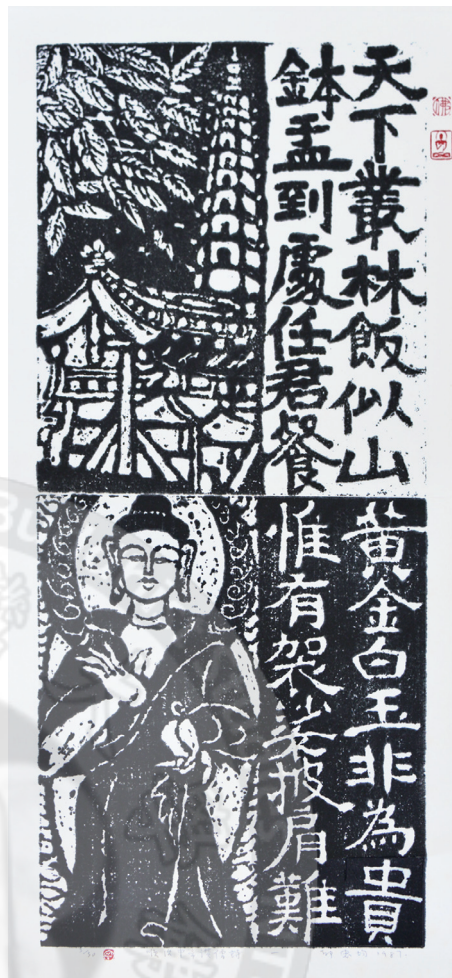 天下叢林飯似山
鉢盂到處任君餐
黃金白玉非為貴
惟有袈裟披肩難